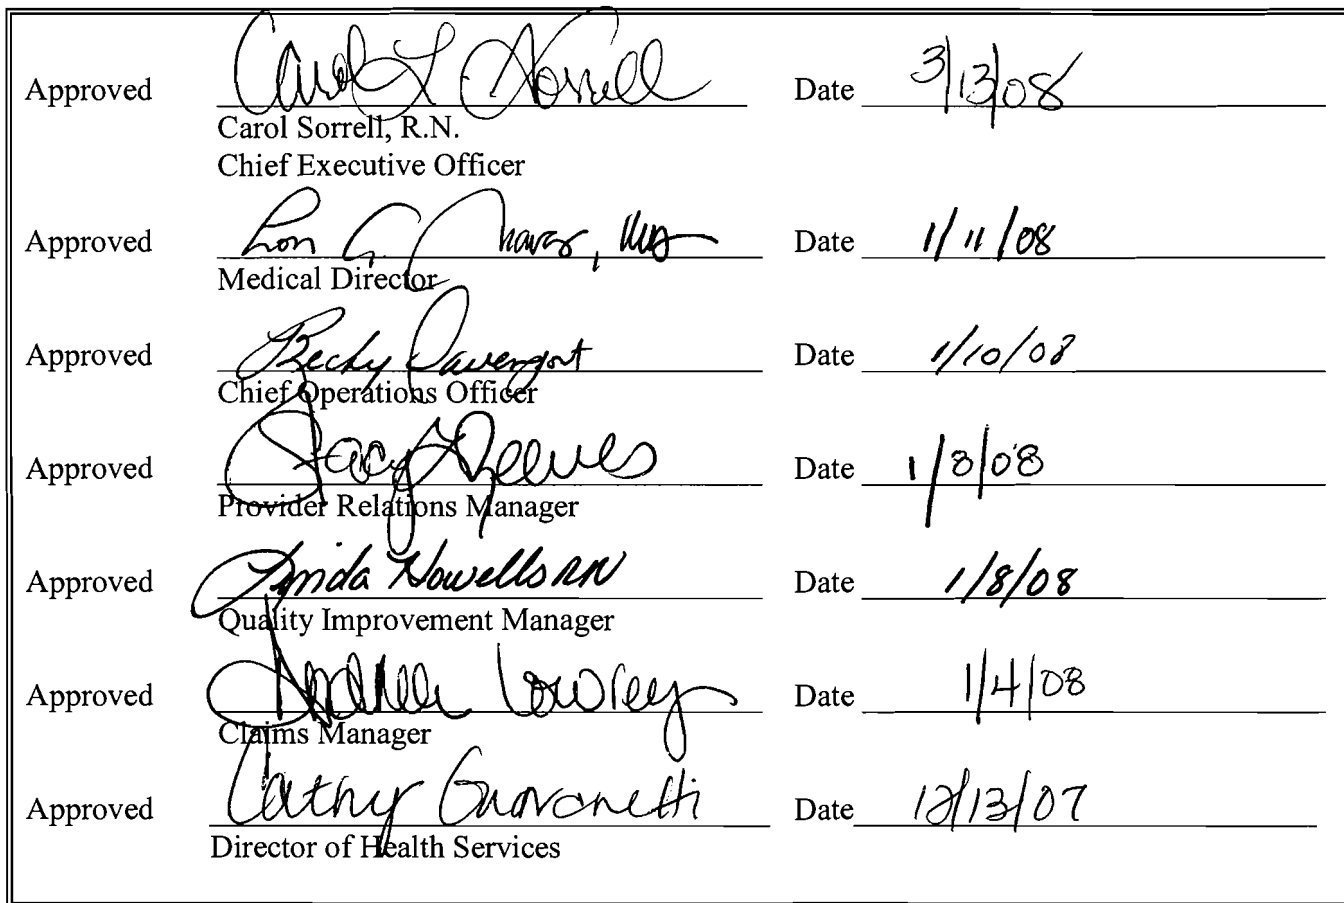 Approved Carol L Sorrell Date 3/13/08
Carol Sorrell, R.N.
Chief Executive Officer
Approved Date 1/11/08
Medical Director
Approved Becky Davenport Date 1/10/08
Chief Operations Officer
Approved Stacy Reeves Date 1/8/08
Provider Relations Manager
Approved Linda Howells RN Date 1/8/08
Quality Improvement Manager
Approved Lowrey Date 1/4/08
Claims Manager
Approved Cathy Date 12/13/07
Director of Health Services